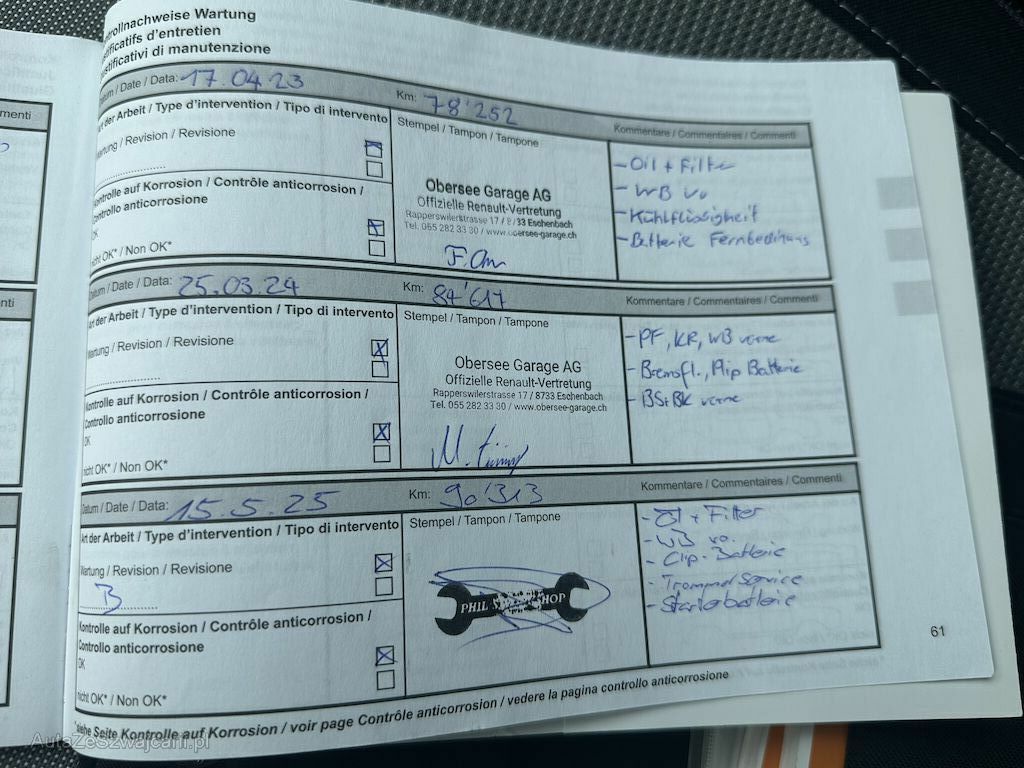 ntrollnachweise Wartung
stificatifs d'entretien
iustificativi di manutenzione
Datum / Date / Data: 17.04.23
Km: 78'252
Kommentare / Commentaires / Commenti
Art der Arbeit / Type d'intervention / Tipo di intervento
Stempel / Tampon / Tampone
Wartung / Revision / Revisione
Kontrolle auf Korrosion / Contrôle anticorrosion /
Controllo anticorrosione
OK
nicht OK* / Non OK*
Obersee Garage AG
Offizielle Renault-Vertretung
Rapperswilerstrasse 17 / 8733 Eschenbach
Tel. 055 282 33 30 / www.obersee-garage.ch
- Oil + Filter
- WB vo
- Kühlflüssigkeit
- Batterie Fernbedinung
Datum / Date / Data: 25.03.24
Km: 84'617
Kommentare / Commentaires / Commenti
Art der Arbeit / Type d'intervention / Tipo di intervento
Stempel / Tampon / Tampone
Wartung / Revision / Revisione
Kontrolle auf Korrosion / Contrôle anticorrosion /
Controllo anticorrosione
OK
nicht OK* / Non OK*
Obersee Garage AG
Offizielle Renault-Vertretung
Rapperswilerstrasse 17 / 8733 Eschenbach
Tel. 055 282 33 30 / www.obersee-garage.ch
- PF, KR, WB vorne
- Bremsfl., Batterie
- BS+BK vorne
Datum / Date / Data: 15.5.25
Km: 90'313
Kommentare / Commentaires / Commenti
Art der Arbeit / Type d'intervention / Tipo di intervento
Stempel / Tampon / Tampone
Wartung / Revision / Revisione
B
Kontrolle auf Korrosion / Contrôle anticorrosion /
Controllo anticorrosione
OK
nicht OK* / Non OK*
PHIL SHOP
- Öl + Filter
- WB vo.
- Clip-Batterie
- Trommel Service
- Starterbatterie
*siehe Seite Kontrolle auf Korrosion / voir page Contrôle anticorrosion / vedere la pagina controllo anticorrosione
61
menti
nti
AutaZeSzwajcarii.pl